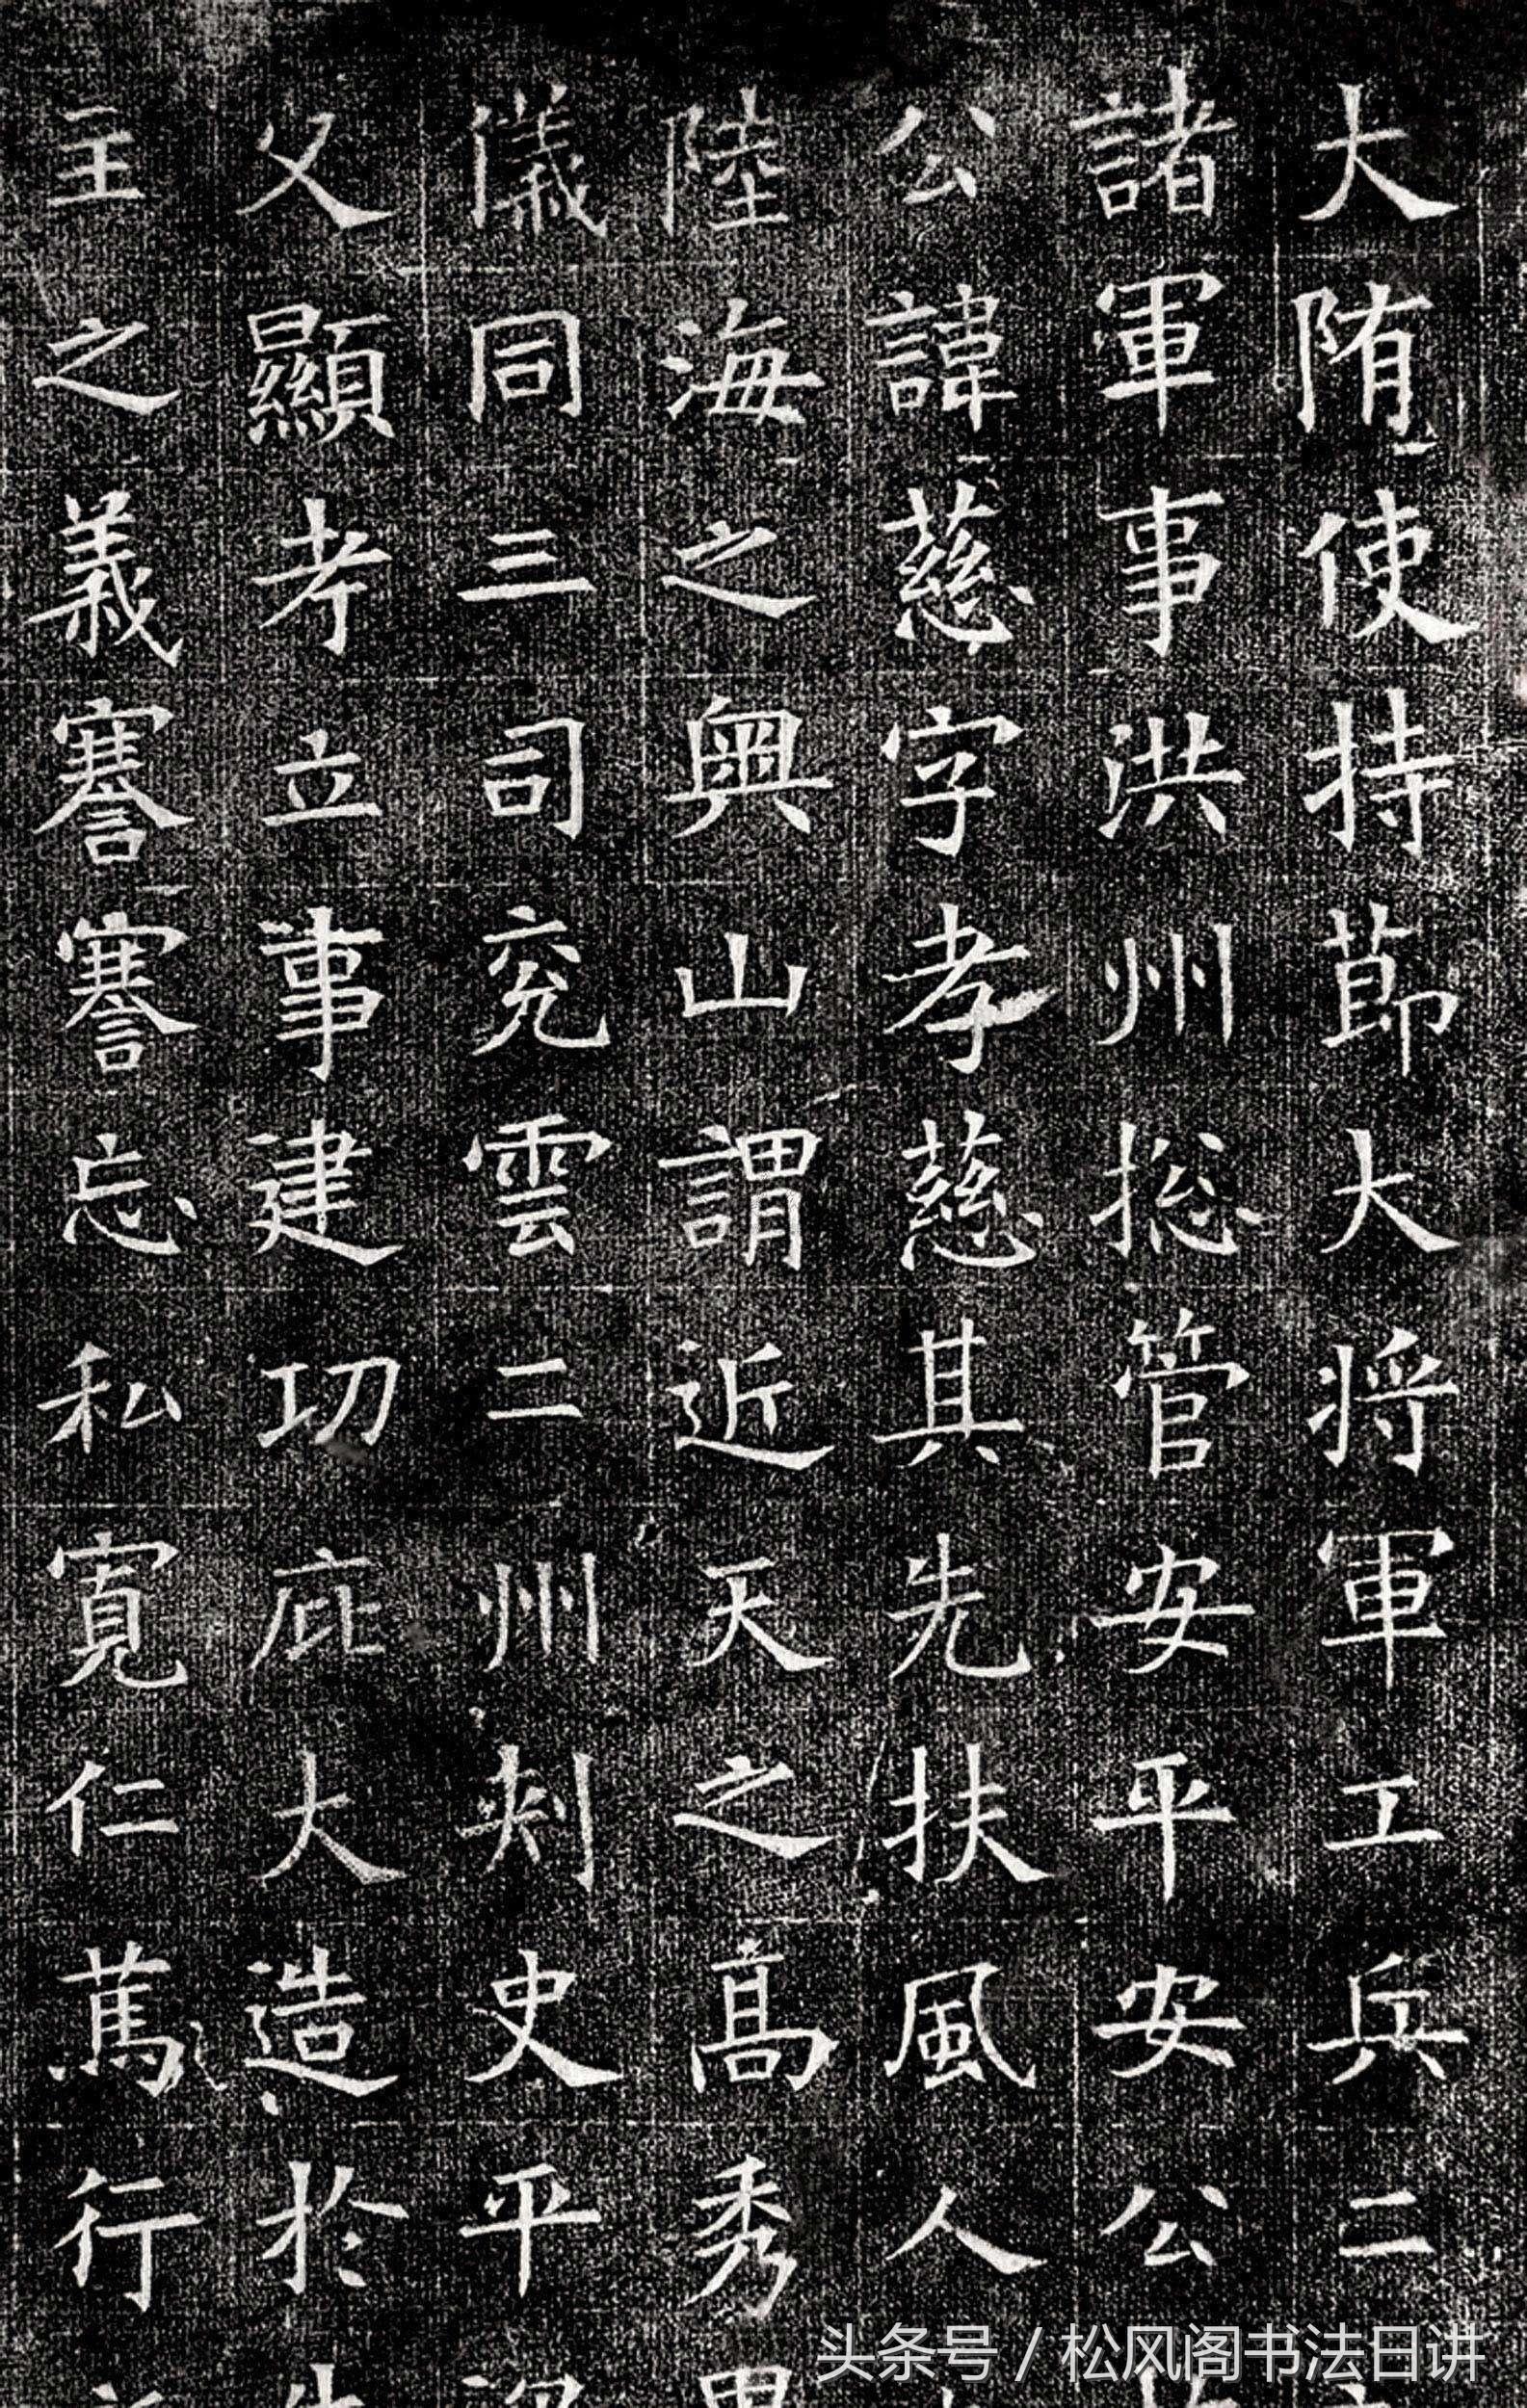 大隋使持節大将軍工兵二
諸軍事洪州捴管安平安公
公諱慈字孝慈其先扶風人
陸海之奥山謂近天之髙秀
儀同三司兖雲二州刾史平
父顯考立事建功庇大造於
主之義謇謇忘私寬仁篤行
头条号 / 松风阁书法日讲